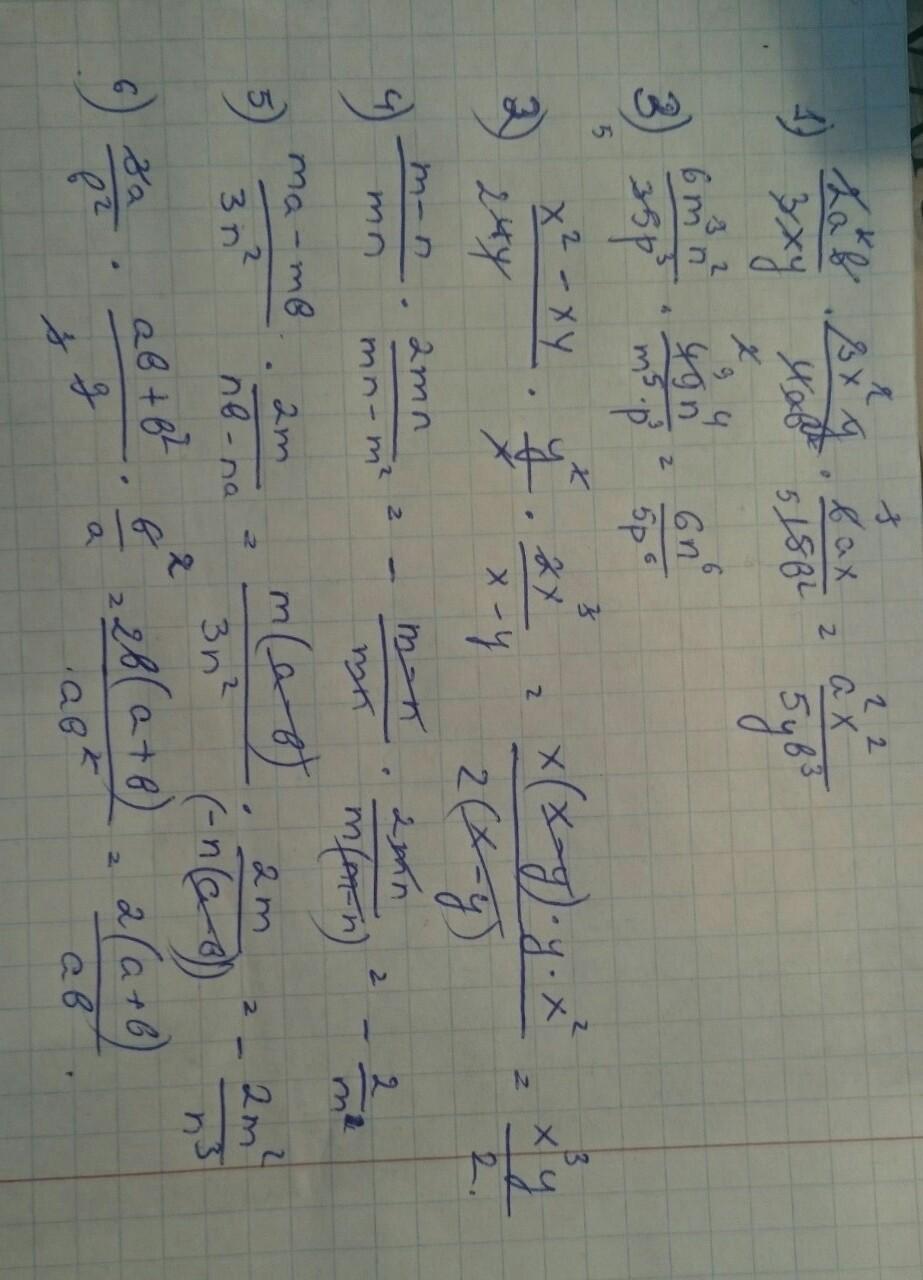 1) 2a²b/3xy · 3x²y/4ab² · 6ax/15b² = a²x²/5yb³
3) 6m³n²/35p³ · 49n⁴/m⁵·p³ = 6n⁶/5p⁶
2) x²-xy/24y · y²/x · 2x³/x-y = x(x-y)·y·x²/2(x-y) = x³y/2.
4) m-n/mn · 2mn/mn-m² = - m-n/mn · 2mn/m(m-n) = - 2/m
5) ma-mb/3n² · 2m/nb-na = m(a-b)/3n² · 2m/(-n(a-b)) = - 2m²/n³
6) 3a/b² · ab+b²/9 · b/a = 2b(a+b)/ab² = 2(a+b)/ab.